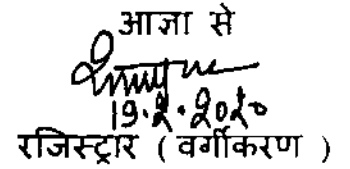 आज्ञा से
19.2.2020
रजिस्ट्रार ( वर्गीकरण )